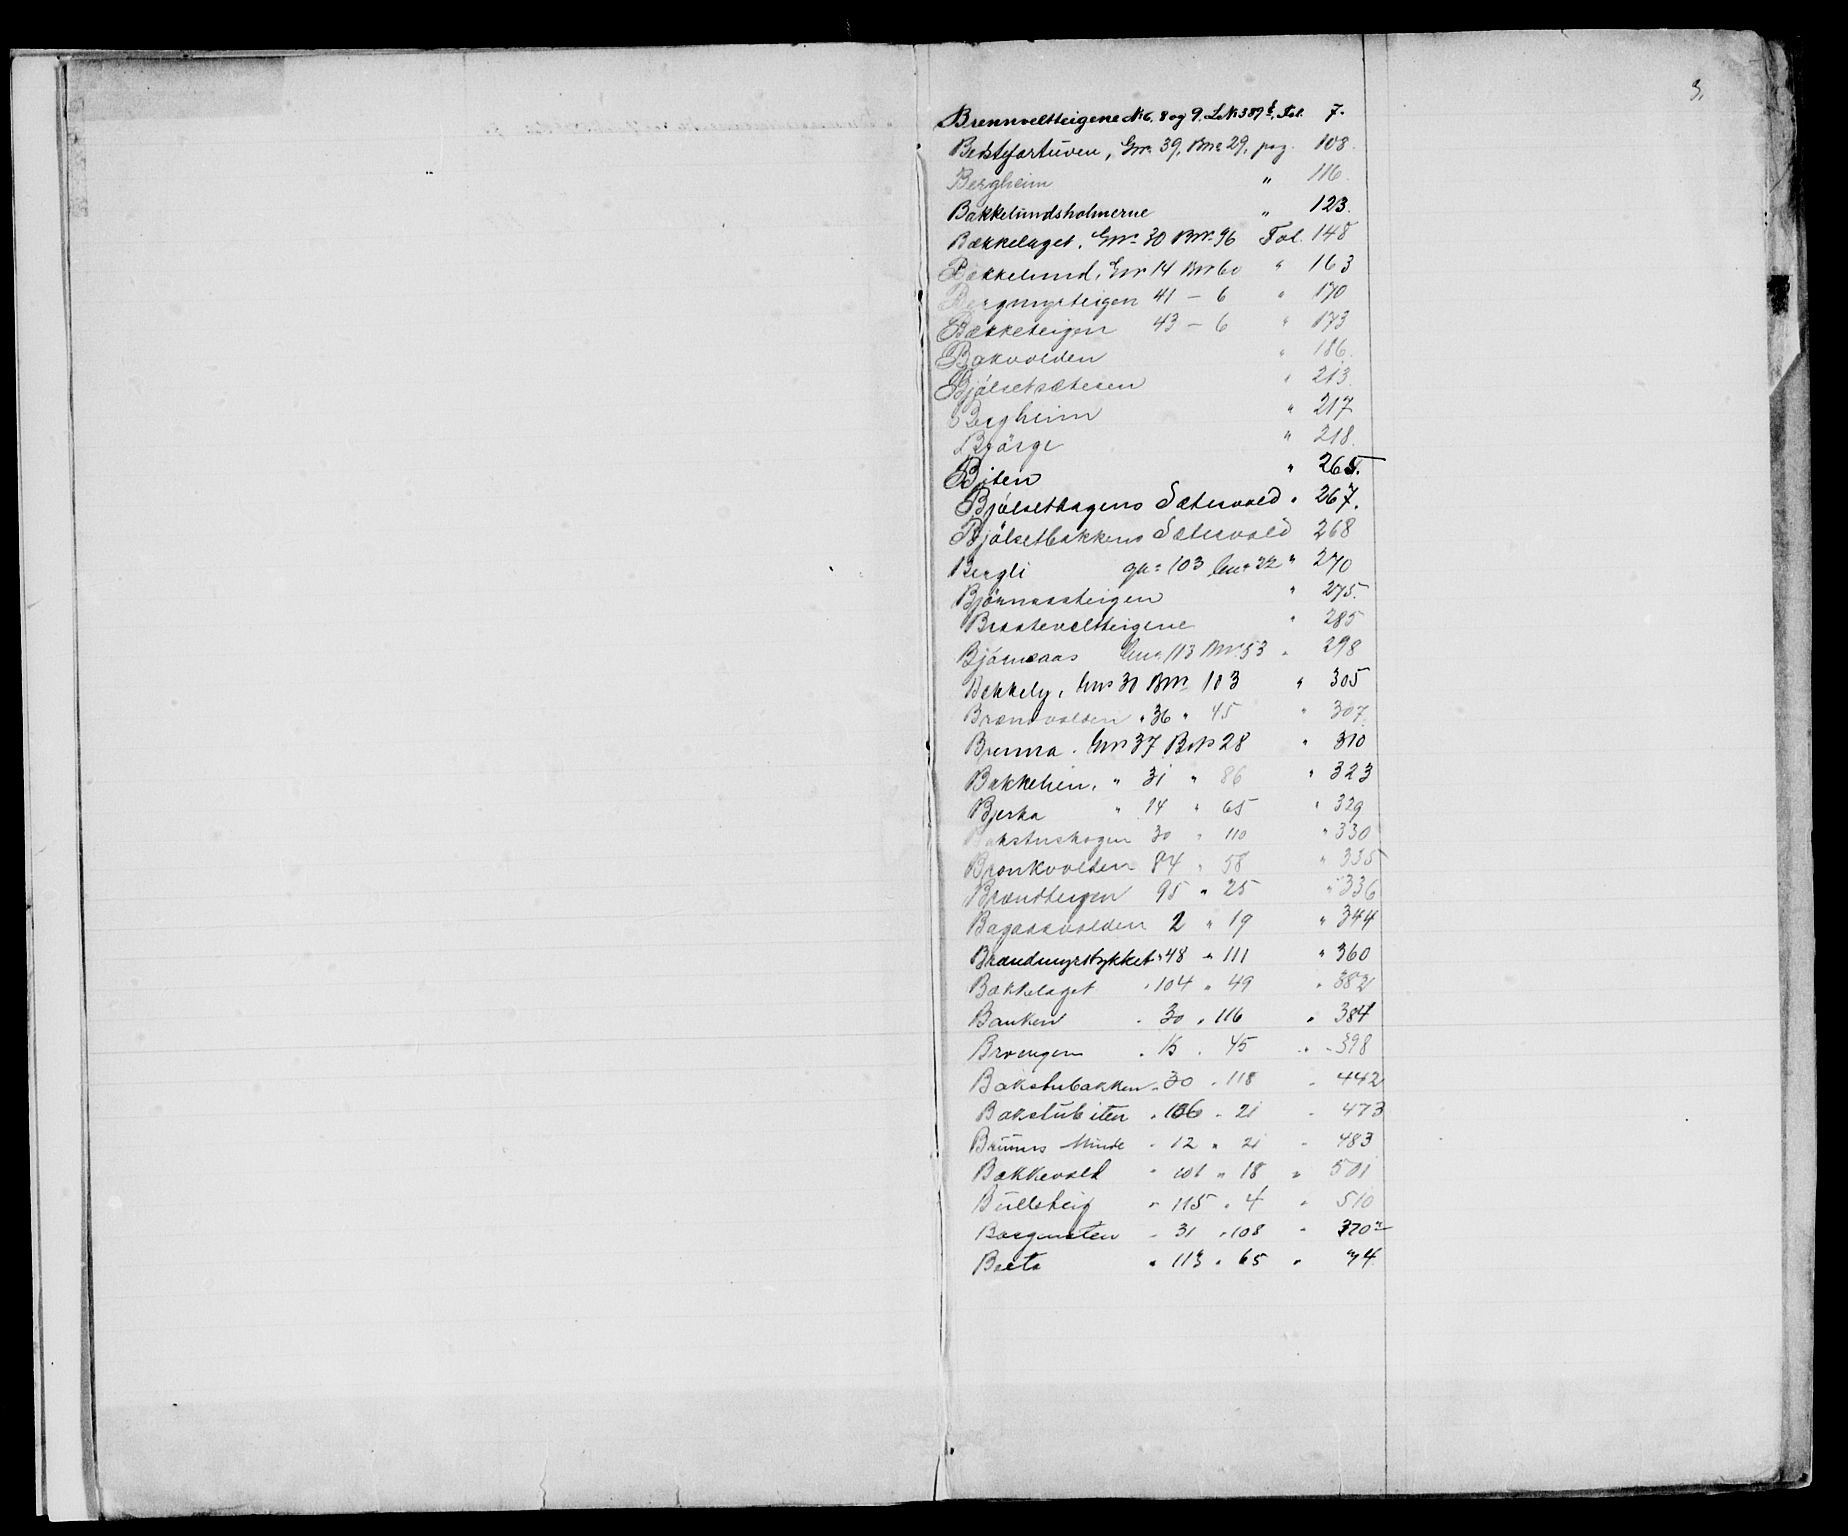 3.
Brennveltteigene N: 6, 8 og 9. L.N: 389 b, Fol. 7.
Bedstefartuven, Gnr. 39, Bnr. 29, pag. 108.
Bergheim " 116.
Bakkelundsholmerne " 123.
Bækkelaget, Gnr. 30 Bnr. 96 Fol. 148
Bakkelund, Gnr 14 Bnr 60 " 163
Bergmyrteigen 41 — 6 " 170
Bækketeigen 43 — 6 " 173
Bakvolden " 186.
Bjölsetsæteren " 213.
Bergheim " 217
Björge " 218.
Biten " 265.
Bjölsethagens Sætervold " 267.
Bjölsetbakkens Sætervold 268
Bergli gn: 103 bn: 22 " 270
Björnaasteigen " 275.
Braateveltteigene " 285
Björnaas Gnr. 113 Bnr 53 " 298
Bekkely, Gnr 30 Bnr 103 " 305
Brændvolden " 36 " 45 " 307.
Brenna. Gnr 37 Bnr 28 " 310
Bakkelien, " 31 " 86 " 323
Bjerka " 14 " 65 " 329
Bakstuskogen 30 " 110 " 330
Bronkvolden 84 " 58 " 335
Brændteigen 95 " 25 " 336
Bagaasvolden 2 " 19 " 344
Brændmyrstykket " 48 " 111 " 360
Bækkelaget " 104 " 49 " 382
Banken " 30 " 116 " 384
Broengen " 15 " 45 " 398
Bakstubakken " 30 " 118 " 442
Bakstubiten " 106 " 21 " 473
Bruuns Minde " 12 " 21 " 483
Bakkevold " 101 " 18 " 501
Bulleteig " 115 " 4 " 510
31 " 108 " 370
" 113 " 65 " 74